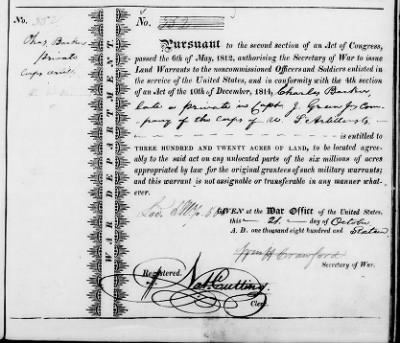 No. 352
Chas. Barker
private
Corps Artill.
WAR DEPARTMENT.
No. 352
Pursuant to the second section of an Act of Congress,
passed the 6th of May, 1812, authorising the Secretary of War to issue
Land Warrants to the noncommissioned Officers and Soldiers enlisted in
the service of the United States, and in conformity with the 4th section
of an Act of the 10th of December, 1814, Charles Barker,
late a private in Capt. J. Com-
pany of the Corps of U. S Artillery
is entitled to
THREE HUNDRED AND TWENTY ACRES OF LAND, to be located agreeably
to the said act on any unlocated parts of the six millions of acres
appropriated by law for the original grantees of such military warrants; and
this warrant is not assignable or transferable in any manner what-
ever.
GIVEN at the War Office of the United States,
this 21. day of October
A. D. one thousand eight hundred and Sixteen
Wm H Crawford
Secretary of War.
Registered.
Nat. Cutting
Clerk